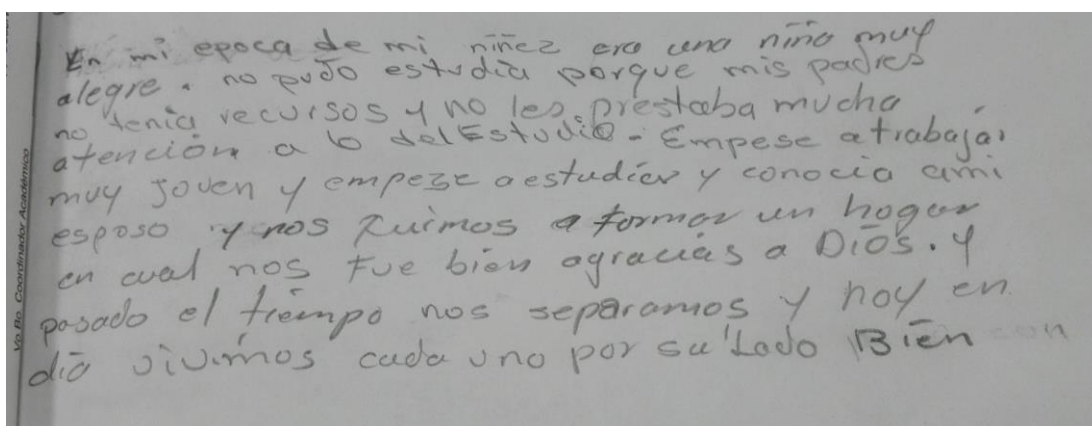 En mi epoca de mi niñez era una niña muy
alegre. no pudo estudia porque mis padres
no tenia recursos y no les prestaba mucha
atención a lo del Estudio - Empese a trabajar
muy joven y empeze a estudiar y conocia a mi
esposo y nos fuimos a formar un hogar
en cual nos fue bien agracias a Dios. y
pasado el tiempo nos separamos y hoy en
día vivimos cada uno por su Lado Bien
Vo.Bo. Coordinador Académico